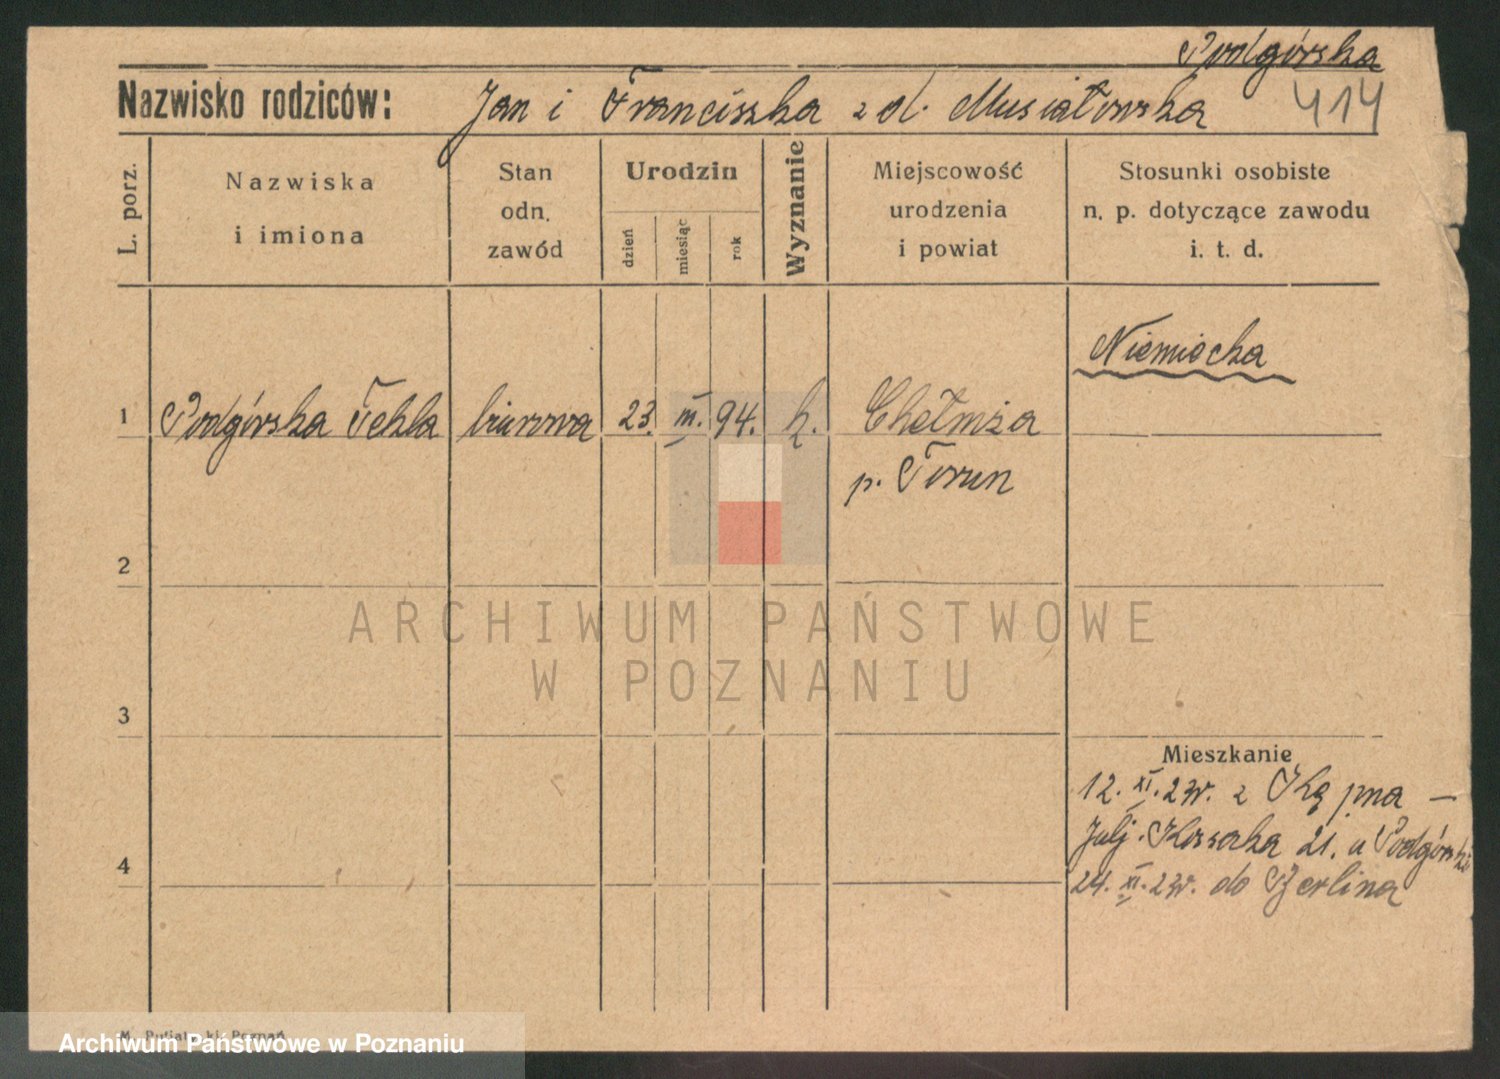 Podgórska
Nazwisko rodziców: Jan i Franciszka z d. Musiałowska 414
L. porz.
Nazwiska
i imiona
Stan
odn.
zawód
Urodzin
dzień
miesiąc
rok
Wyznanie
Miejscowość
urodzenia
i powiat
Stosunki osobiste
n. p. dotyczące zawodu
i. t. d.
Niemiecka
1 Podgórska Tekla biurowa 23. III. 94. k. Chełmża
p. Torun
2
ARCHIWUM PAŃSTWOWE
W POZNANIU
3
Mieszkanie
12. XI. 23r. z Kępna —
Julj. Kossaka 21. u Podgórski
4
24. XI. 23r. do Berlina
Poznań
Archiwum Państwowe w Poznaniu